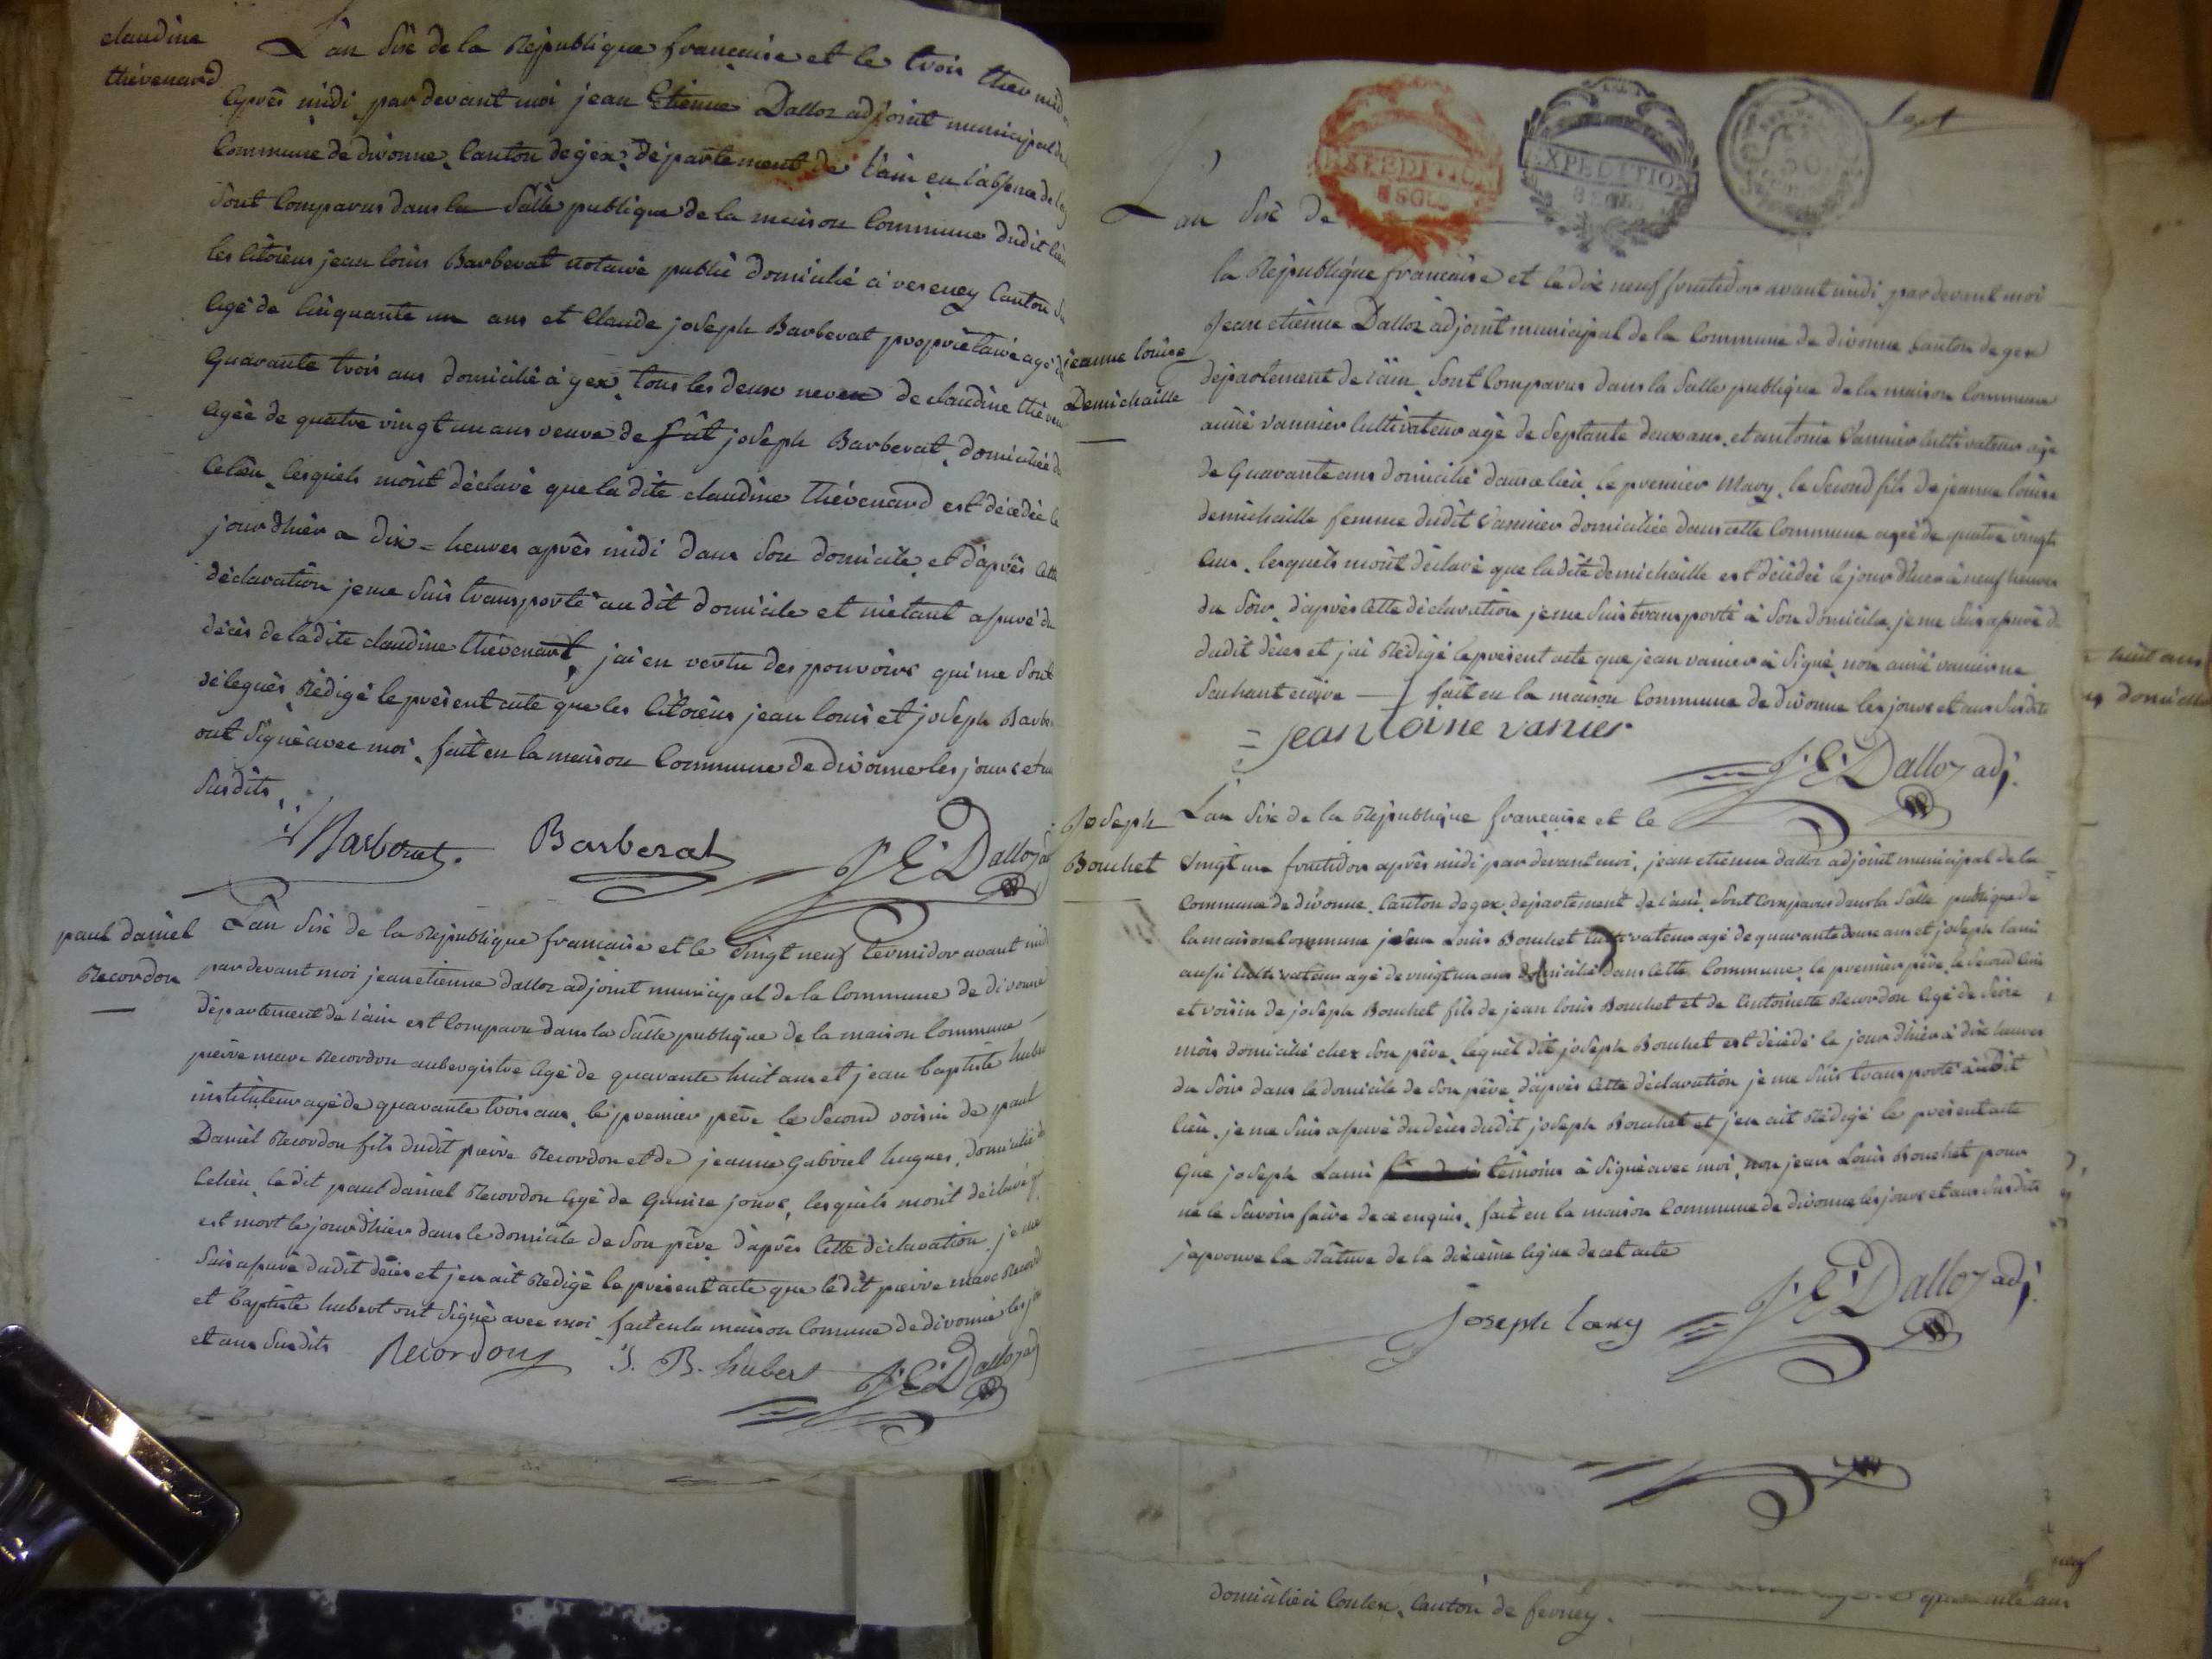 claudine
thévenard
L'an Sixe de la République francaise et le trois thermid
après midi par devant moi jean Etienne Dalloz adjoint municipal de
Commune de divonne, Canton de gex, département de l'ain en l'absence de
Sont Comparus dans la Salle publique de la maison Commune dudit lieu
les Citoiens jean louis Barberat notaire public domicilié à veseney Canton du
agé de Cinquante un ans et Claude joseph Barberat propriétaire agé de
quarante trois ans domicilié à gex, tous les deux neveu de claudine théven
agée de quatre vingt un ans veuve de fût joseph Barberat, domiciliée
Celieu, lesquels m'ont déclaré que la dite claudine thévenard est décedée le
jour d'hier a dix = heures après midi dans Son domicile et d'après Cette
déclaration je me Suis transporté au dit domicile et m'etant assuré du
décès de ladite claudine thévenard, j'ai en vertu des pouvoirs qui me Sont
délegués, Rédigé le présent acte que les Citoiens jean louis et joseph Barbe
ont Signé avec moi, fait en la maison Commune de divonne les jours et an
Susdits,
Barberat.
Barberat
J. E. Dalloz
paul daniel
Recordon
L'an Sixe de la République francaise et le Vingt neuf termidor avant mid
par devant moi jean etienne dalloz adjoint municipal de la Commune de divonne
département de l'ain est Comparu dans la Salle publique de la maison Commune
pierre marc Recordon aubergistre agé de quarante huit ans et jean baptiste hube
instituteur agé de quarante trois ans, le premier père le Second voisin de paul
Daniel Recordon fils dudit pierre Recordon et de jeanne Gabriel hugues, domicilié
Celieu, ledit paul daniel Recordon agé de Quinze jours, lesquels m'ont déclaré q
est mort le jour d'hier dans le domicile de Son père d'après Cette déclaration, je me
Suis assuré dudit décès et j'en ait Rédigé le présent acte que ledit pierre marc Record
et baptiste hubert ont Signé avec moi, fait en la maison Comune de divonne les jo
et ans Susdits
Recordon
J. B. hubert
J. E. Dalloz adj
Sept
EXPEDITION
8 SOLS
EXPEDITION
8 SOLS
50
L'an Sixe de
la République francaise et le dix neuf fructidor avant midi par devant moi
Jean etienne Dalloz adjoint municipal de la Commune de divonne Canton de gex
jeanne louise
Demichaille
département de l'ain, Sont Comparus dans la Salle publique de la maison Commune
aimé vannier Cultivateur agé de Septante deux ans, et antoine Vannier Cultivateur agé
de Quarante ans domicilié dans ce lieu, le premier Mary, le Second fils de jeanne louise
demichaille femme dudit Vannier domiciliée dans cette Commune agée de quatre vingts
ans, lesquels m'ont déclaré que ladite demichaille est décédée le jour d'hier à neuf heures
du Soir, d'après Cette déclaration je me Suis transporté à Son domicile, je me Suis assuré d
dudit décès et j'ai Rédigé le présent acte que jean vanier à Signé, non aimé vanier ne
Sachant écrire — fait en la maison Commune de divonne les jours et ans Susdits
= jeantoine vanier
J. E. Dalloz adj.
Joseph
Bouchet
L'an Sixe de la République francaise et le
Vingt un fructidor après midi par devant moi, jean etienne dalloz adjoint municipal de la
Commune de divonne, Canton de gex, département de l'ain, Sont Comparus dans la Salle publique de
la maison Commune jean Louis Bouchet Cultivateur agé de quarante deux ans et joseph lami
aussi Cultivateur agé de vingt un ans domicilié dans Cette Commune, le premier père, le Second ami
et voisin de joseph Bouchet fils de jean louis Bouchet et de Antoinette Recordon agé de Seize
mois domicilié chez Son père, lequel dit joseph Bouchet est décédé le jour d'hier à dix heures
du Soir dans le domicile de Son père, d'après Cette déclaration je me Suis transporté audit
lieu, je me Suis assuré du décès dudit joseph Bouchet et j'en ait Rédigé le présent acte
que joseph Lami témoins à Signé avec moi, non jean Louis Bouchet pour
ne le Savoir faire de ce enquis, fait en la maison Commune de divonne les jours et ans Susdits
j'aprouve la Rature de la dixième ligne de cet acte
Joseph lamy
J. E. Dalloz adj.
huit ans
domicilié
neuf
quarante ans
domicilié à Coulex, Canton de ferney.